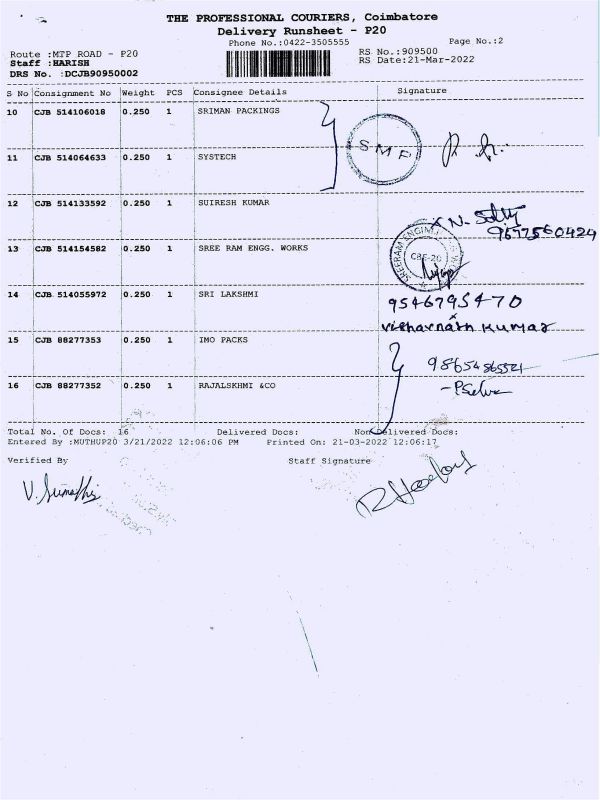 THE PROFESSIONAL COURIERS, Coimbatore
Delivery Runsheet - P20
Phone No.:0422-3505555 Page No.:2
Route :MTP ROAD - P20 RS No.:909500
Staff :HARISH RS Date:21-Mar-2022
DRS No. :DCJB90950002
S No Consignment No Weight PCS Consignee Details Signature
10 CJB 514106018 0.250 1 SRIMAN PACKINGS
SMP
11 CJB 514064633 0.250 1 SYSTECH
12 CJB 514133592 0.250 1 SUIRESH KUMAR
9677560424
13 CJB 514154582 0.250 1 SREE RAM ENGG. WORKS
CBE-20
14 CJB 514055972 0.250 1 SRI LAKSHMI 9546795470
Vishavnath Kumar
15 CJB 88277353 0.250 1 IMO PACKS
16 CJB 88277352 0.250 1 RAJALSKHMI &CO
Total No. Of Docs: 16 Delivered Docs: Non Delivered Docs:
Entered By :MUTHUP20 3/21/2022 12:06:06 PM Printed On: 21-03-2022 12:06:17
Verified By Staff Signature